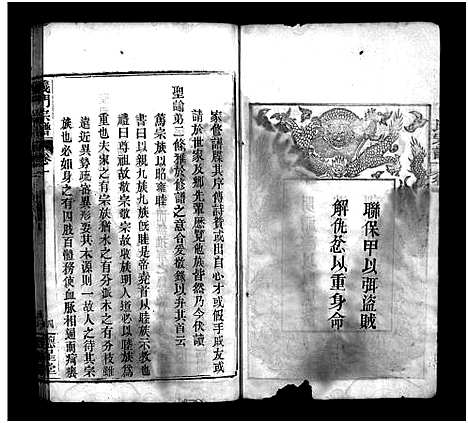 聯保甲以弭盜賊
解仇忿以重身命
家修譜牒其序傳詩贊或出自心才或假手戚友或
請於世家及鄉先輩歷覽敬皆然乃今伏讀
聖諭第二條雅於修譜之意合爰敬錄以弁其首云
萬宗族以昭雍睦
書曰以親九族九族既睦是帝堯首以睦族示教也
禮曰尊祖故敬宗敬宗故收族明人道必以睦族為
重也夫家之有宗族猶水之有分派木之有分枝雖
遠近異勢疏密異形要其本源則一故人之待其宗
族也必如身之有四肢百體務使血脈相通而疴癢
義門宗譜
卷一